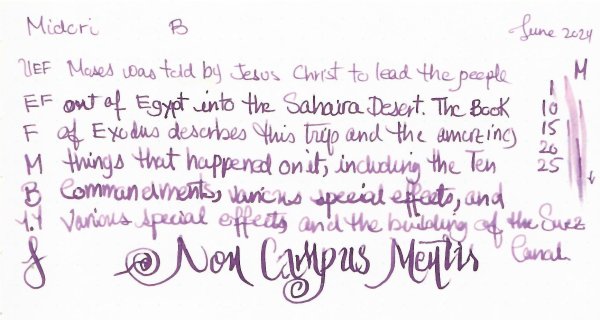 Midori B June 2024
UEF Moses was told by Jesus Christ to lead the people
EF out of Egypt into the Sahaira Desert. The Book
F of Exodus describes this trip and the amazing
M things that happened on it, including the Ten
B Commandments, various special effects, and
1.1 various special effects and the building of the Suez
Canal.
f Non Campus Mentis
M
1
10
15
20
25